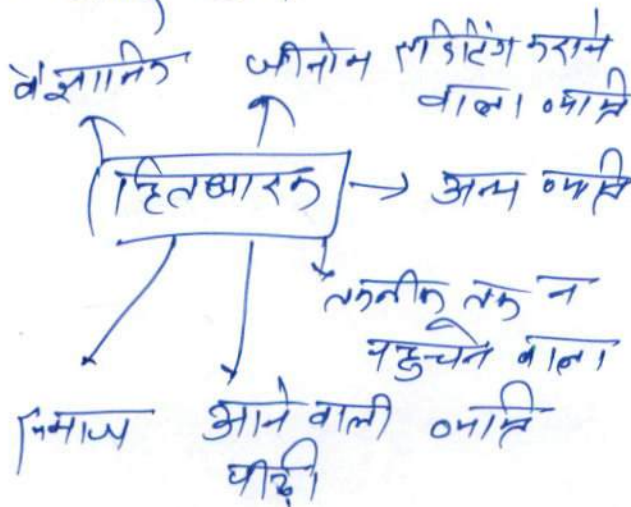 वैज्ञानिक
जीनोम एडिटिंग कराने
वाला व्यक्ति
हितधारक
अन्य व्यक्ति
तकनीक तक न
पहुचने वाला
व्यक्ति
समाज
आने वाली
पीढ़ी